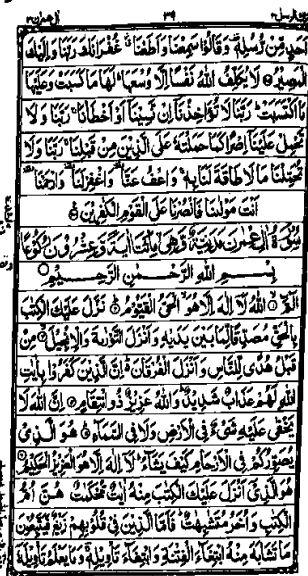 أَحَدٍ مِّنْ رُّسُلِهٖ ۟ وَقَالُوْا سَمِعْنَا وَاَطَعْنَا ۗ غُفْرَانَكَ رَبَّنَا وَاِلَيْكَ
الْمَصِيْرُ لَا يُكَلِّفُ اللّٰهُ نَفْسًا اِلَّا وُسْعَهَا ؕ لَهَا مَا كَسَبَتْ وَعَلَيْهَا
مَا اكْتَسَبَتْ ؕ رَبَّنَا لَا تُؤَاخِذْنَاۤ اِنْ نَّسِيْنَاۤ اَوْ اَخْطَاْنَا ۚ رَبَّنَا وَلَا
تَحْمِلْ عَلَيْنَاۤ اِصْرًا كَمَا حَمَلْتَهٗ عَلَى الَّذِيْنَ مِنْ قَبْلِنَا ۚ رَبَّنَا وَلَا
تُحَمِّلْنَا مَا لَا طَاقَةَ لَنَا بِهٖ ۚ وَاعْفُ عَنَّا وَاغْفِرْ لَنَا وَارْحَمْنَا
اَنْتَ مَوْلٰىنَا فَانْصُرْنَا عَلَى الْقَوْمِ الْكٰفِرِيْنَ
بِسْمِ اللّٰهِ الرَّحْمٰنِ الرَّحِيْمِ
الٓمّٓ اللّٰهُ لَاۤ اِلٰهَ اِلَّا هُوَ الْحَيُّ الْقَيُّوْمُ نَزَّلَ عَلَيْكَ الْكِتٰبَ
بِالْحَقِّ مُصَدِّقًا لِّمَا بَيْنَ يَدَيْهِ وَاَنْزَلَ التَّوْرٰىةَ وَالْاِنْجِيْلَ مِنْ
قَبْلُ هُدًى لِّلنَّاسِ وَاَنْزَلَ الْفُرْقَانَ ؕ اِنَّ الَّذِيْنَ كَفَرُوْا بِاٰيٰتِ
اللّٰهِ لَهُمْ عَذَابٌ شَدِيْدٌ ؕ وَاللّٰهُ عَزِيْزٌ ذُو انْتِقَامٍ اِنَّ اللّٰهَ لَا
يَخْفٰى عَلَيْهِ شَيْءٌ فِي الْاَرْضِ وَلَا فِي السَّمَآءِ هُوَ الَّذِيْ
يُصَوِّرُكُمْ فِي الْاَرْحَامِ كَيْفَ يَشَآءُ ؕ لَاۤ اِلٰهَ اِلَّا هُوَ الْعَزِيْزُ الْحَكِيْمُ
هُوَ الَّذِيْۤ اَنْزَلَ عَلَيْكَ الْكِتٰبَ مِنْهُ اٰيٰتٌ مُّحْكَمٰتٌ هُنَّ اُمُّ
الْكِتٰبِ وَاُخَرُ مُتَشٰبِهٰتٌ ؕ فَاَمَّا الَّذِيْنَ فِيْ قُلُوْبِهِمْ زَيْغٌ فَيَتَّبِعُوْنَ
مَا تَشَابَهَ مِنْهُ ابْتِغَآءَ الْفِتْنَةِ وَابْتِغَآءَ تَاْوِيْلِهٖ ۚ وَمَا يَعْلَمُ تَاْوِيْلَهٗۤ